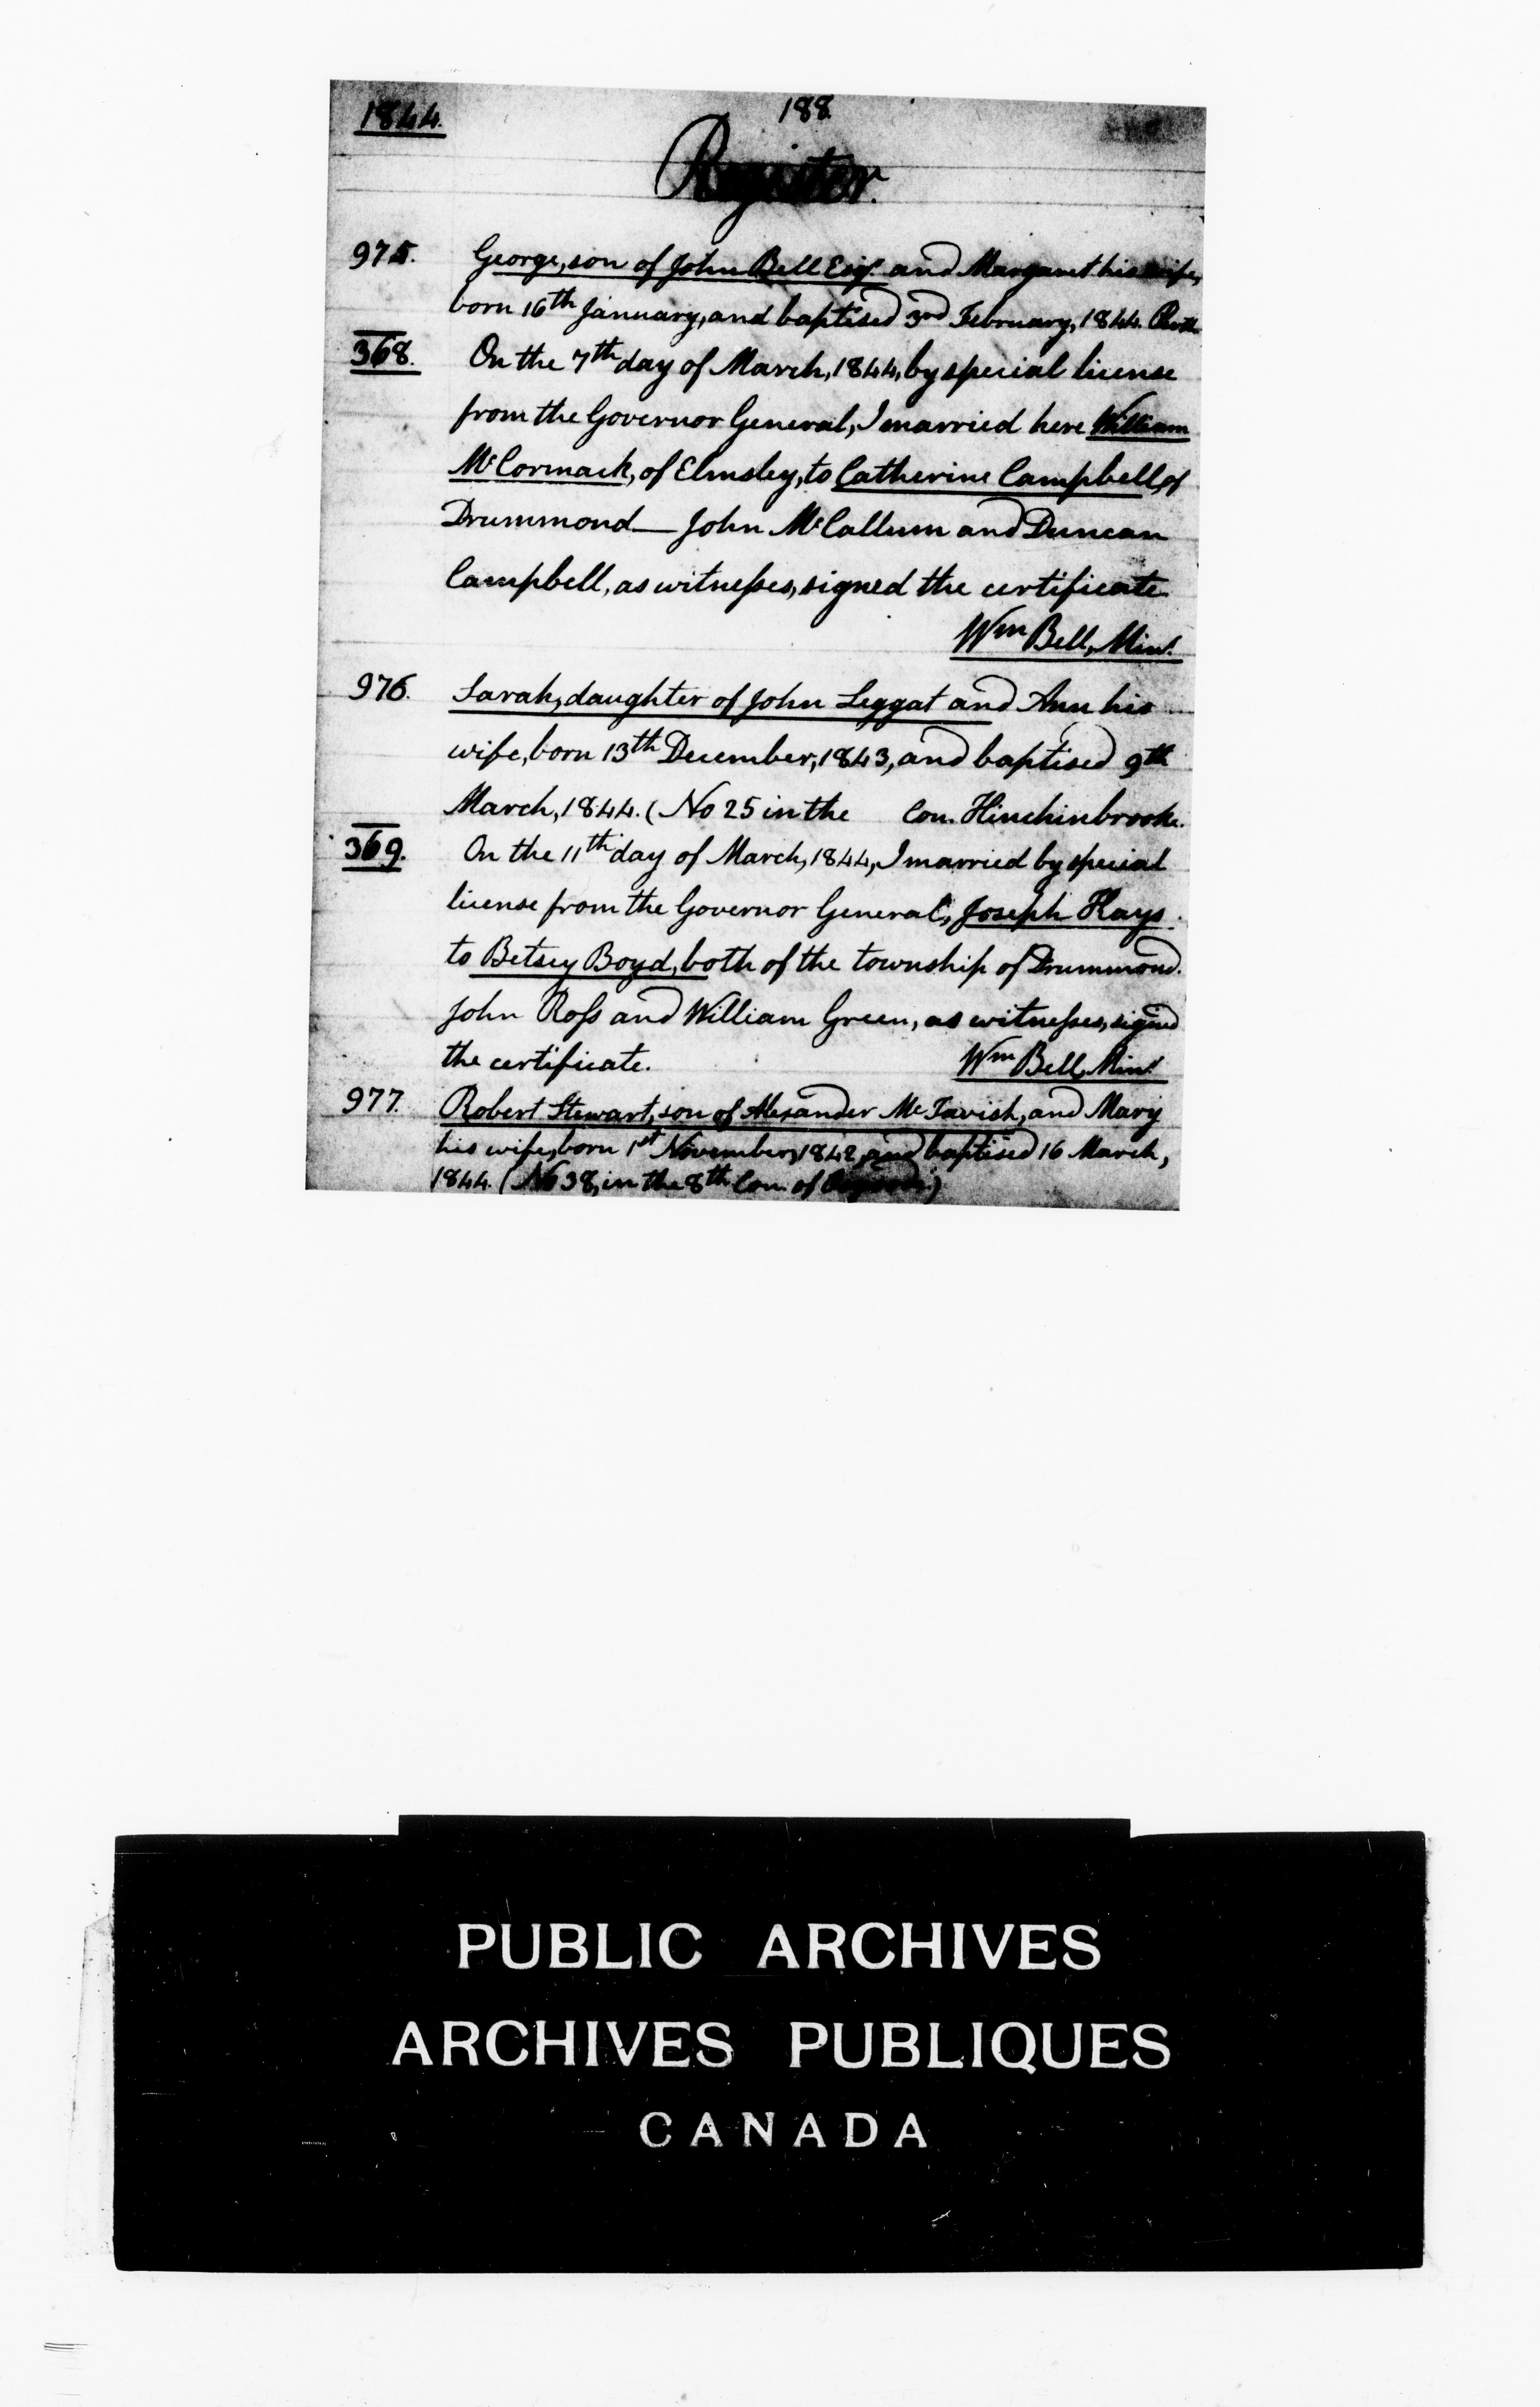 1844.
188
Register.
975. George, son of John Bell Esqr. and Margaret his wife,
born 16th January, and baptised 3rd February, 1844. Perth
368. On the 7th day of March, 1844, by special license
from the Governor General, I married here William
McCormack, of Elmsley, to Catherine Campbell, of
Drummond — John McCallum and Duncan
Campbell, as witnesses, signed the certificate.
Wm Bell, Minr.
976. Sarah, daughter of John Leggat and Ann his
wife, born 13th December, 1843, and baptised 9th
March, 1844. (No 25 in the Con. Hinchinbrooke.
369. On the 11th day of March, 1844, I married by special
license from the Governor General, Joseph Hays
to Betsey Boyd, both of the township of Drummond.
John Ross and William Green, as witnesses, signed
the certificate. Wm Bell, Minr.
977. Robert Stewart, son of Alexander McTavish, and Mary
his wife, born 1st November, 1842, and baptised 16 March,
1844. (No 38, in the 8th Con. of
PUBLIC ARCHIVES
ARCHIVES PUBLIQUES
CANADA